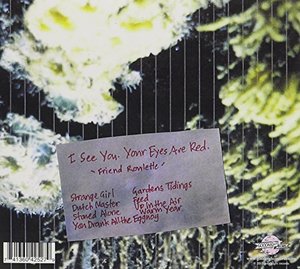 I See You. Your Eyes Are Red.
~ Friend Roulette ~
Strange Girl
Dutch Master
Stoned Alone
You Drank All the Eggnog
Gardens Tidings
Feed
Up in the Air
Warm Year